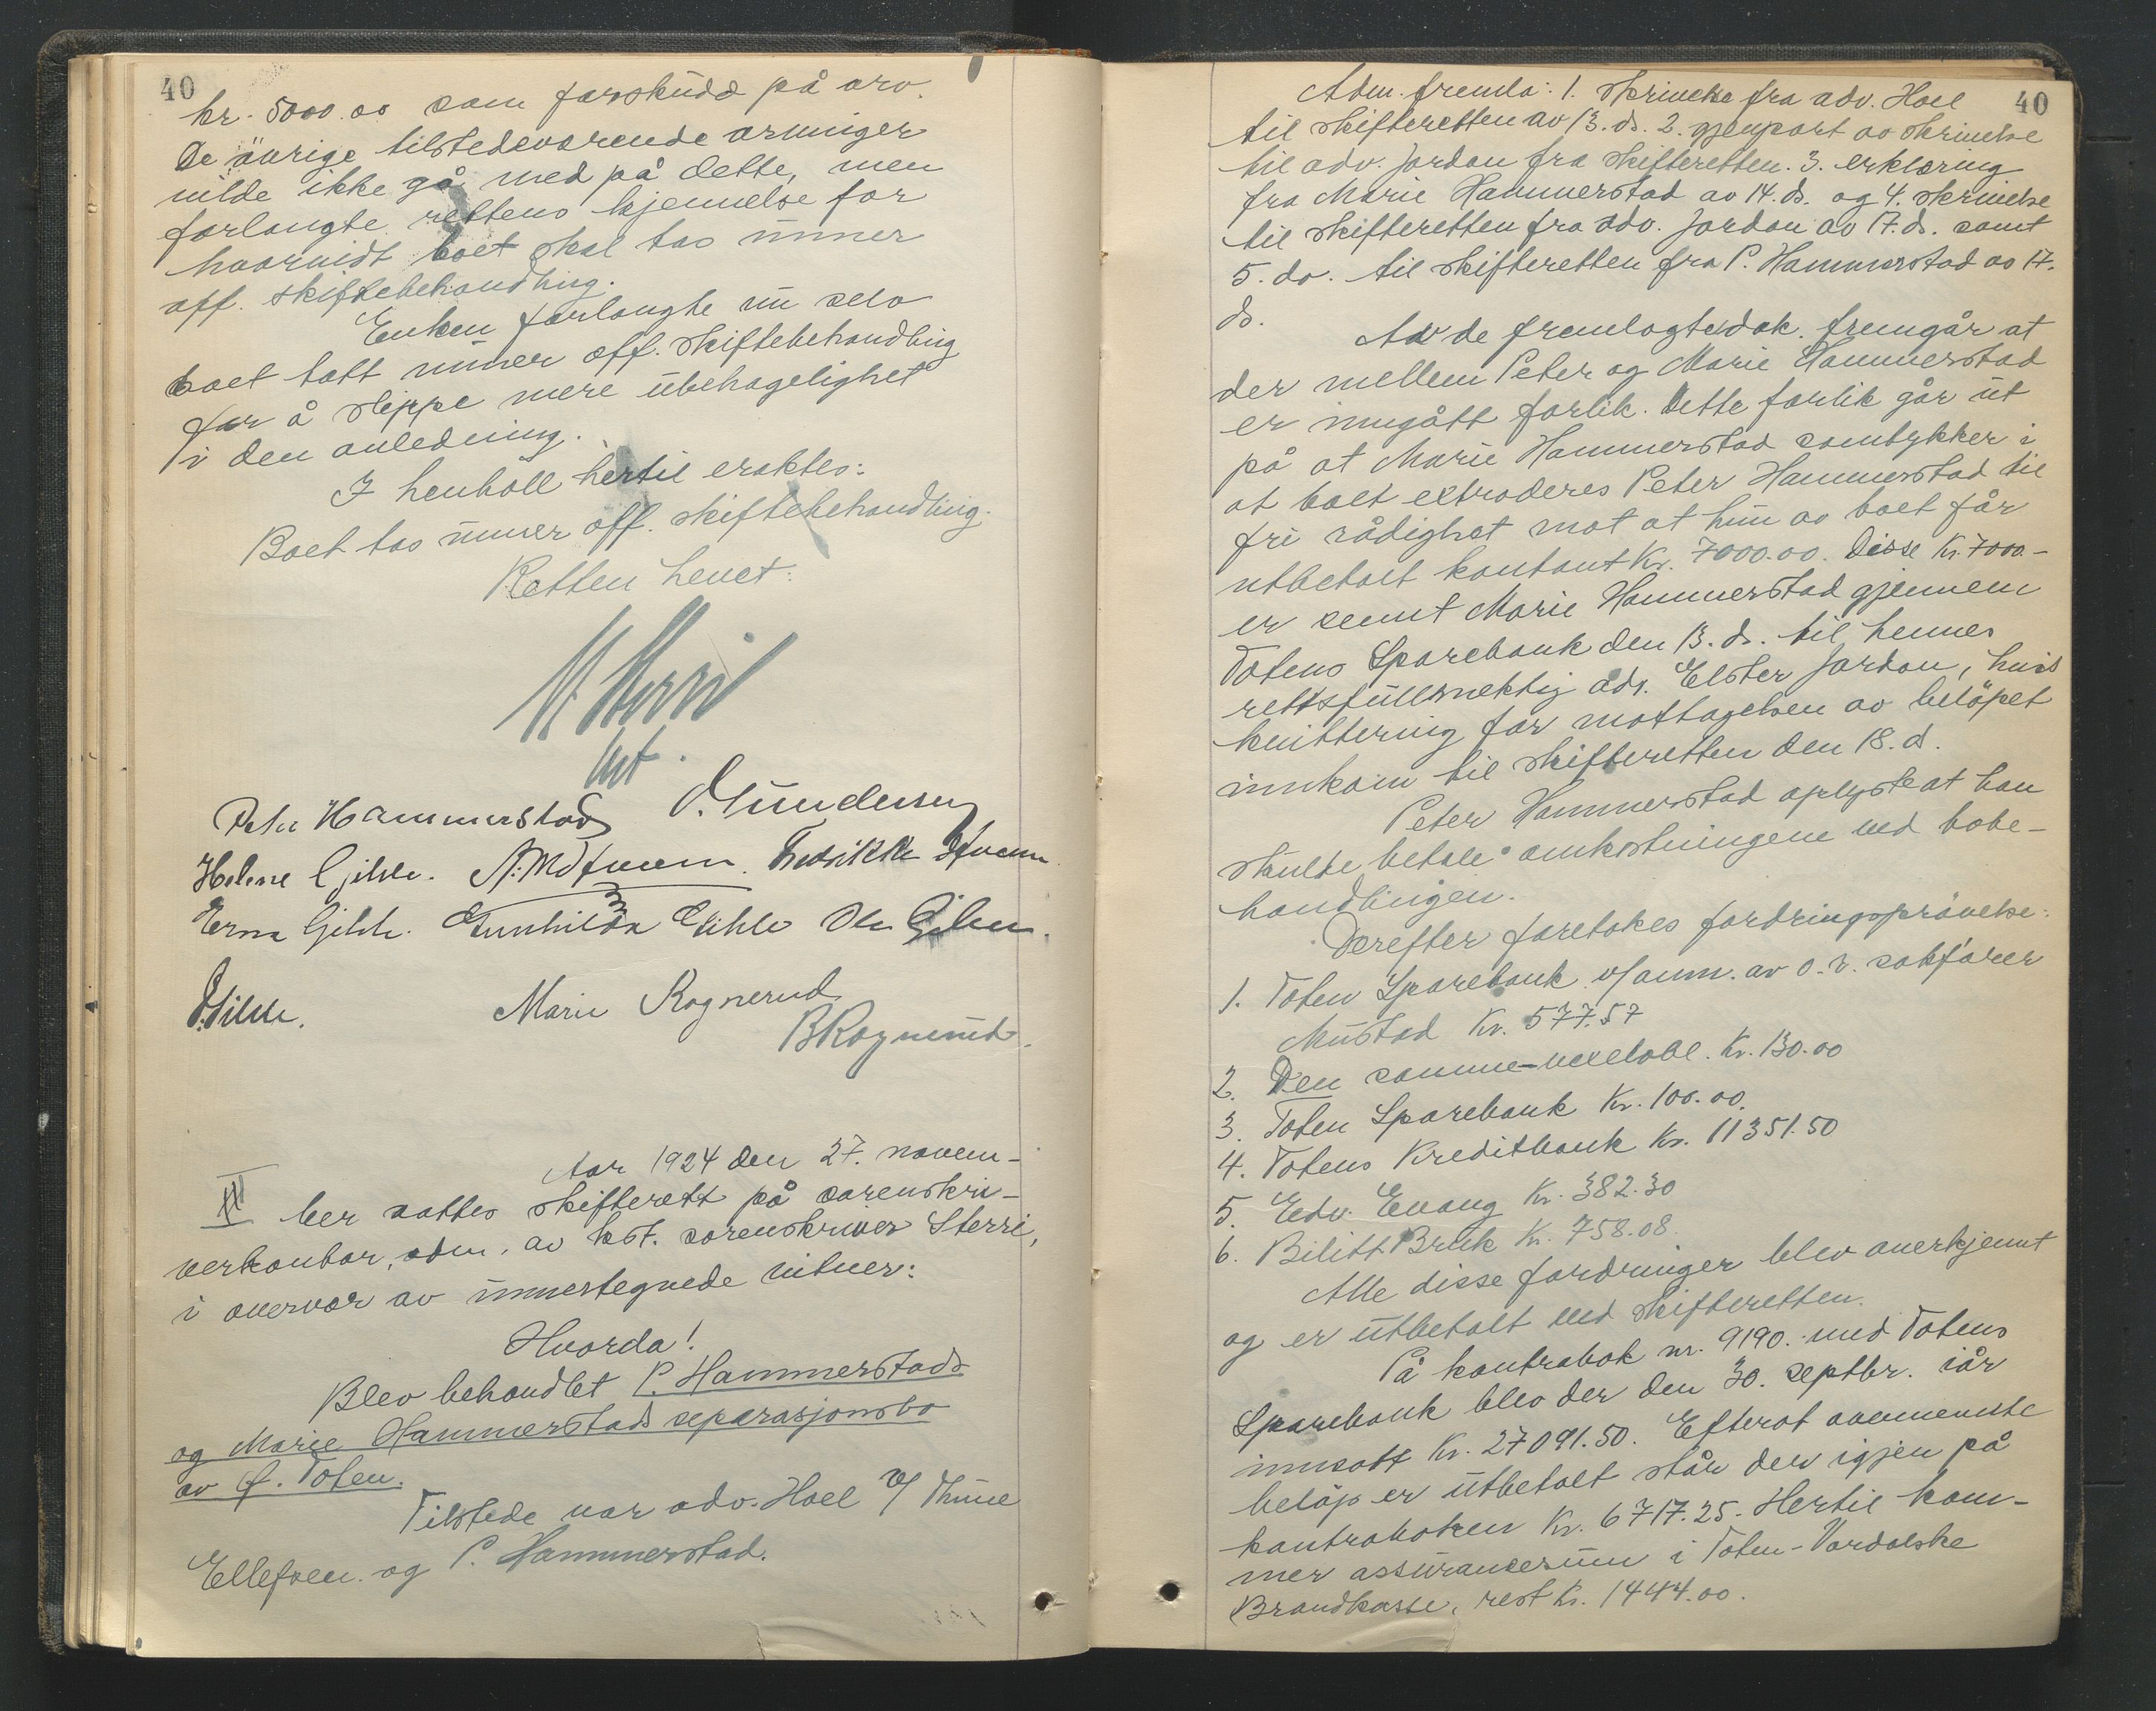 40
kr. 5000.00 som forskudd på arv.
De øvrige tilstedeværende arvinger
vilde ikke gå med på dette, men
forlangte rettens kjennelse for
hvorvidt boet skal tas unner
off. skiftebehandling.
Enken forlangte nu selv
boet tatt unner off. skiftebehandling
for å slippe mere ubehagelighet
i den anledning.
I henholl hertil eraktes:
Boet tas unner off. skiftebehandling.
Retten hevet:
Peter Hammerstad
Helene Gjihle.
Erna Gihle. Gunhilda Gihle Ole Gihle.
Marie Rognerud
B Rognerud.
III
Aar 1924 den 27. novem-
ber sattes skifterett på sorenskri-
verkontor, adm. av kst. sorenskriver Sterri,
i overvær av unnertegnede vitner:
Hvorda!
Blev behandlet P. Hammerstads
og Marie Hammerstads separasjonsbo
av Ø. Toten.
Tilstede var adv. Hoel v/ Thune
Ellefsen og P. Hammerstad.
40
Adm. fremla: 1. Skrivelse fra adv. Hoel
til skifteretten av 13. ds. 2. gjenpart av skrivelse
til adv. Jordan fra skifteretten. 3. erklæring
fra Marie Hammerstad av 14. ds. og 4. skrivelse
til skifteretten fra adv. Jordan av 17. ds. samt
5. do. til skifteretten fra P. Hammerstad av 17.
ds.
Av de fremlagte dok. fremgår at
der mellem Peter og Marie Hammerstad
er inngått forlik. Dette forlik går ut
på at Marie Hammerstad samtykker i
at boet extraderes Peter Hammerstad til
fri rådighet mot at hun av boet får
utbetalt kontant Kr. 7000.00. Disse Kr. 7000.-
er sennt Marie Hammerstad gjennem
Totens Sparebank den 13. ds. til hennes
rettsfullmektig adv. Elster Jordan, hvis
kvittering for mottagelsen av beløpet
innkom til skifteretten den 18. d.
Peter Hammerstad oplyste at han
skulde betale omkostningene ved bobe-
handlingen.
Derefter foretokes fordringsprøvelse:
1. Toten Sparebank v/anm. av o.r. sakfører
Mustad Kr. 577.57
2. Den samme-vexelobl. Kr. 130.00
3. Toten Sparebank Kr. 100.00.
4. Totens Kreditbank Kr. 11351.50
5. Edv. Evang Kr. 382.30
6. Bilitt Bruk Kr. 758.08.
Alle disse fordringer blev anerkjennt
og er utbetalt ved skifteretten.
På kontrabok nr. 9190. med Totens
Sparebank blev der den 30. septbr. iår
innsatt Kr. 27091.50. Efterat ovennevnte
beløp er utbetalt står der igjen på
kontraboken Kr. 6717.25. Hertil kom-
mer assuransesum i Toten-Vardalske
Brandkasse, rest Kr. 1444.00.